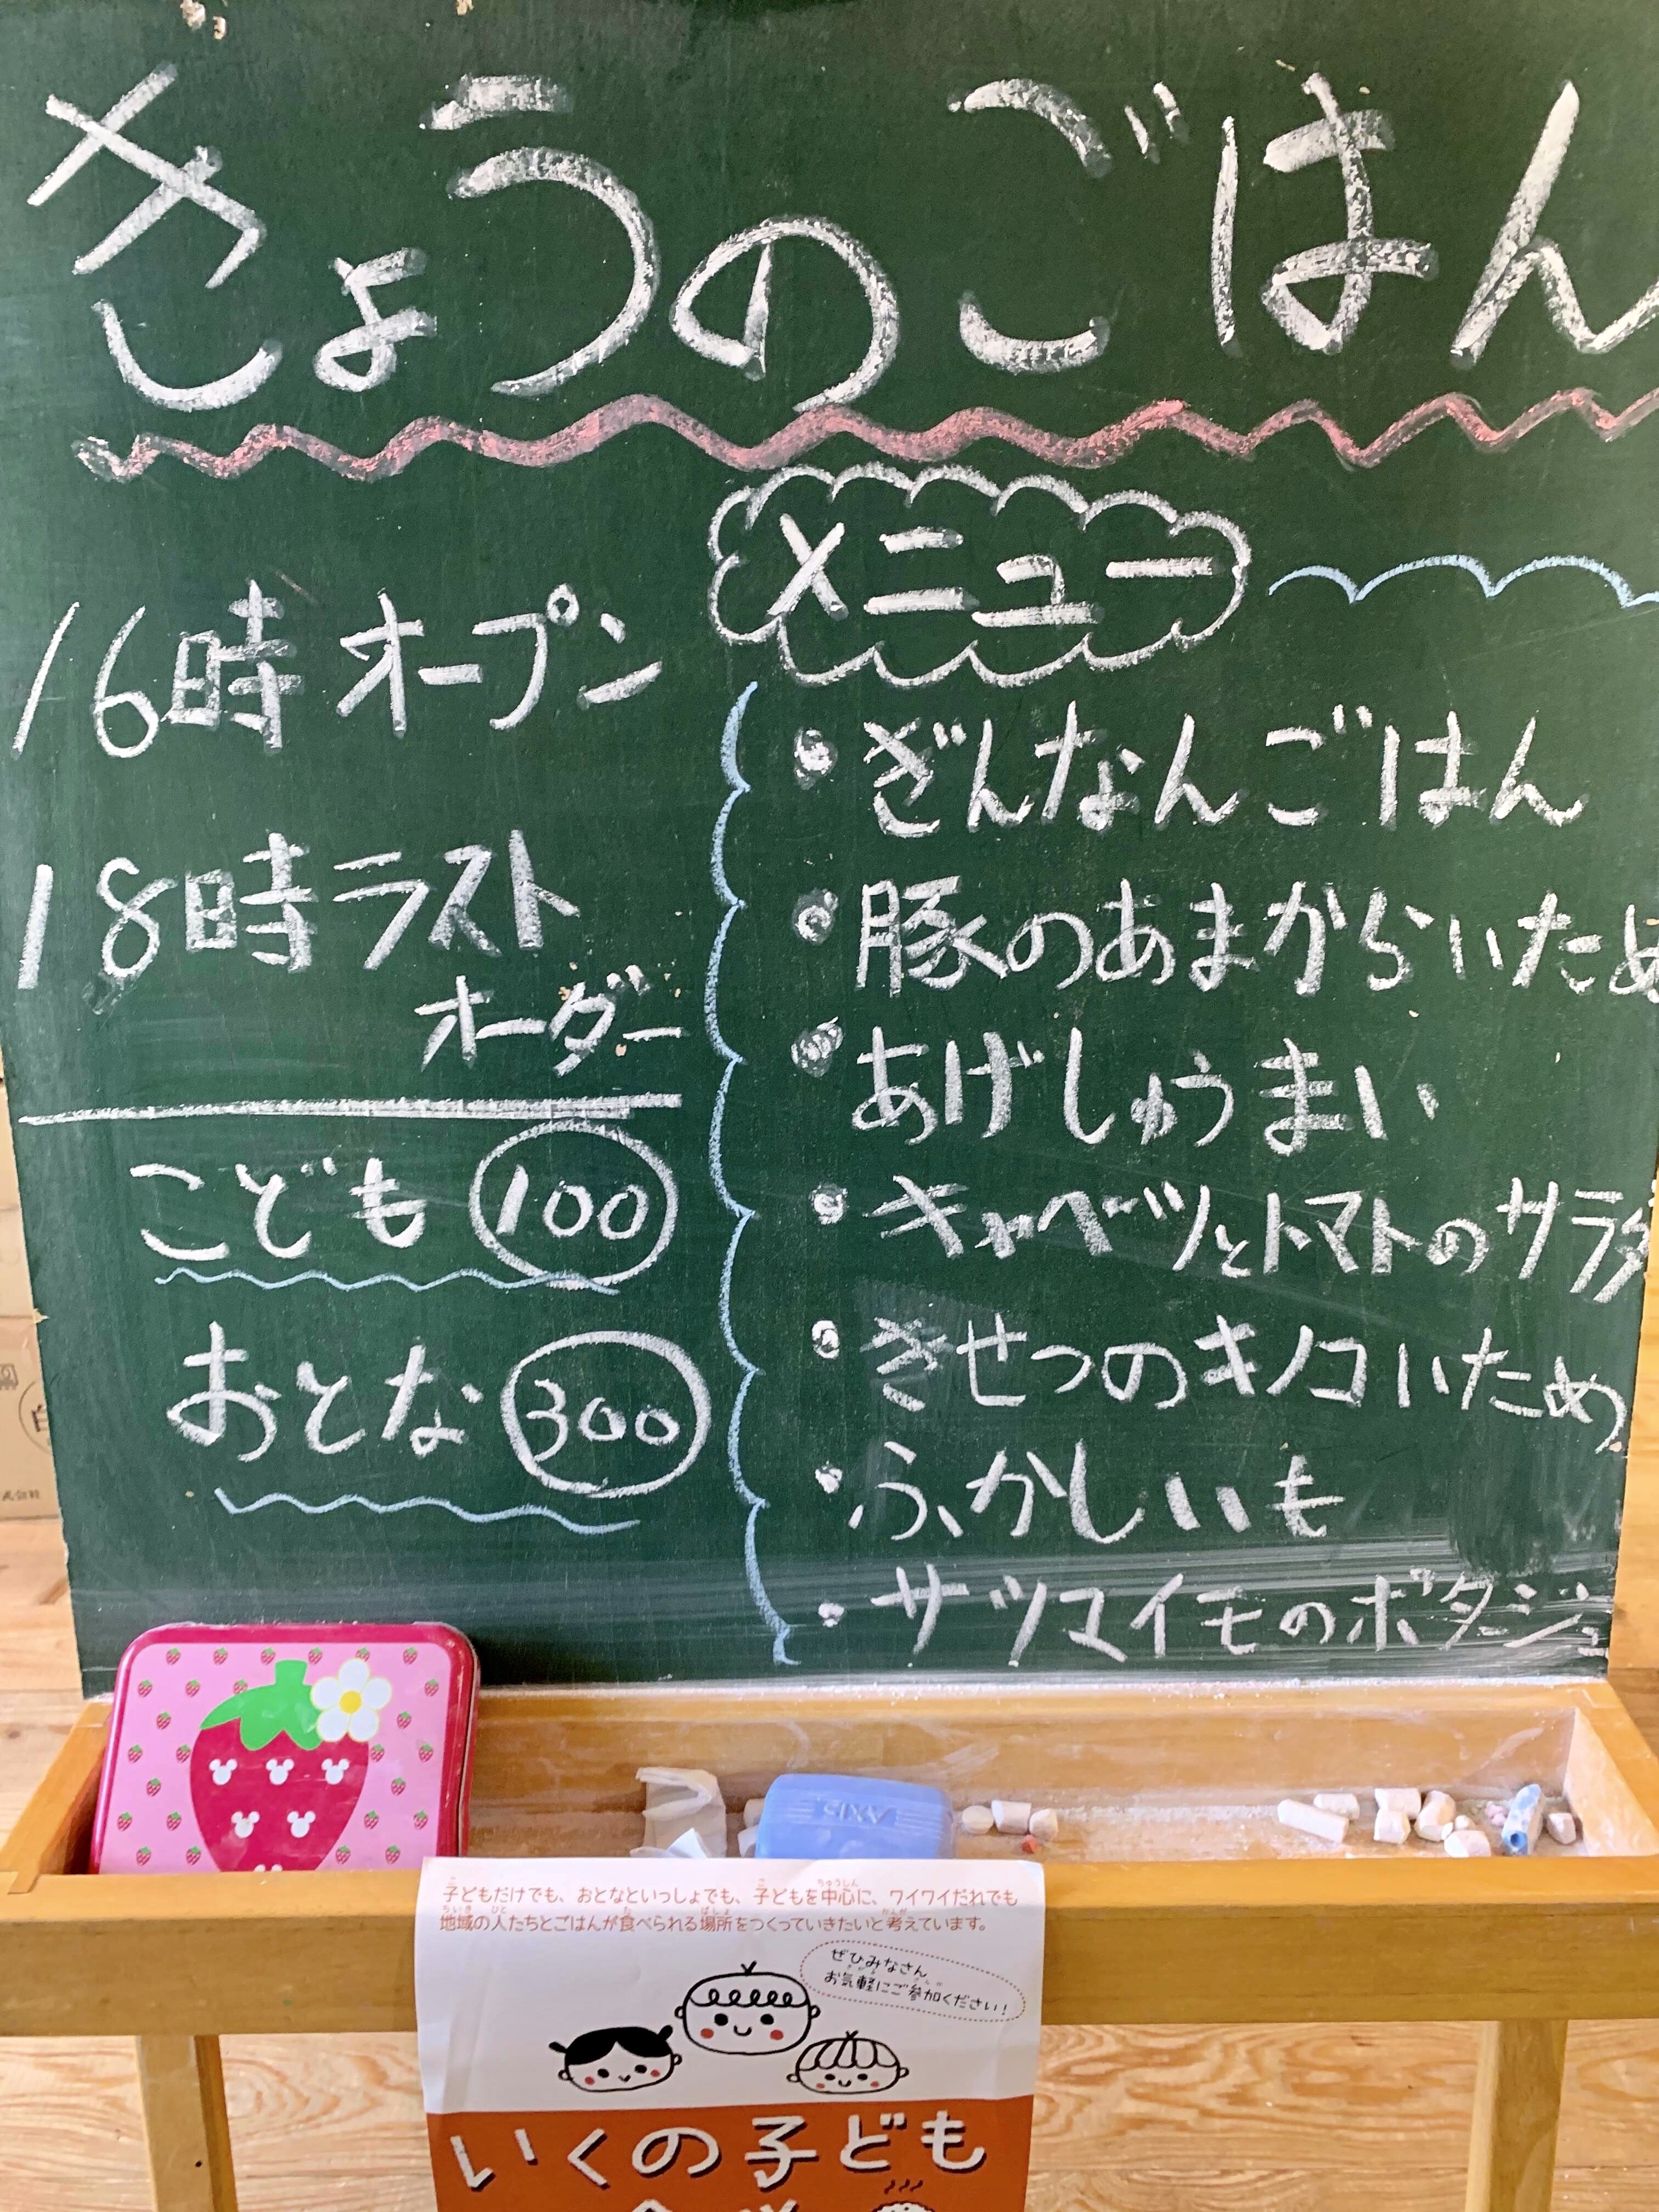 きょうのごはん
16時オープン
18時ラスト
オーダー
こども 100
おとな 300
メニュー
・ぎんなんごはん
・豚のあまからいため
・あげしゅうまい
・キャベツとトマトのサラダ
・きせつのキノコいため
・ふかしいも
・サツマイモのポタージュ
子どもだけでも、おとなといっしょでも、子どもを中心に、ワイワイだれでも
地域の人たちとごはんが食べられる場所をつくっていきたいと考えています。
ぜひみなさん
お気軽にご参加ください!
いくの子ども